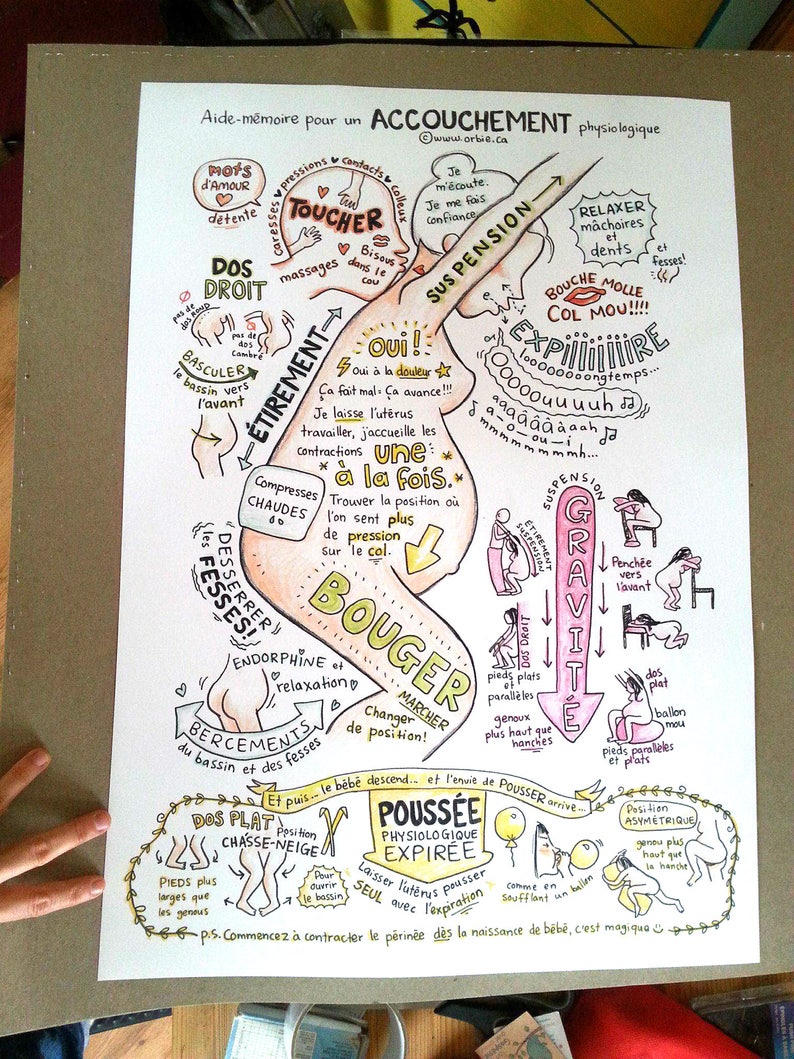 Aide-mémoire pour un ACCOUCHEMENT physiologique
©www.orbie.ca
MOTS
d'AMOUR
détente
caresses ♥ pressions ♥ contacts ♥ colleux
TOUCHER
massages
Bisous
dans le
cou
Je
m'écoute.
Je me fais
confiance...
SUSPENSION
RELAXER
mâchoires
et
dents
et
fesses!
BOUCHE MOLLE
COL MOU!!!!
EXPIIIIIIIIRE
looooooooongtemps...
OOOOouuuuh
aaaââââàaah
a-o-ou-i
mmmmmmmmmh...
DOS
DROIT
pas de
dos ROND
pas de
dos
cambré
BASCULER
le bassin vers
l'avant
ÉTIREMENT
OUI!
Oui à la douleur
Ça fait mal = Ça avance!!!
Je laisse l'utérus
travailler, j'accueille les
contractions une
à la fois.
Trouver la position où
l'on sent plus
de pression
sur le col.
Compresses
CHAUDES
DESSERRER
les FESSES!
BOUGER
MARCHER
Changer
de position!
ENDORPHINE et
relaxation
BERCEMENTS
du bassin et des fesses
SUSPENSION
GRAVITÉ
ÉTIREMENT
SUSPENSION
DOS DROIT
pieds plats
et
parallèles
genoux
plus haut que
hanches
Penchée
vers
l'avant
dos
plat
ballon
mou
pieds parallèles
et plats
Et puis... le bébé descend... et l'envie de POUSSER arrive...
DOS PLAT
Position
CHASSE-NEIGE
PIEDS plus
larges que
les genous
Pour
ouvrir
le bassin
POUSSÉE
PHYSIOLOGIQUE
EXPIRÉE
Laisser l'utérus pousser
SEUL avec l'expiration
comme en
soufflant un ballon
Position
ASYMÉTRIQUE
genou plus
haut que
la hanche
p.s. Commencez à contracter le périnée dès la naissance de bébé, c'est magique